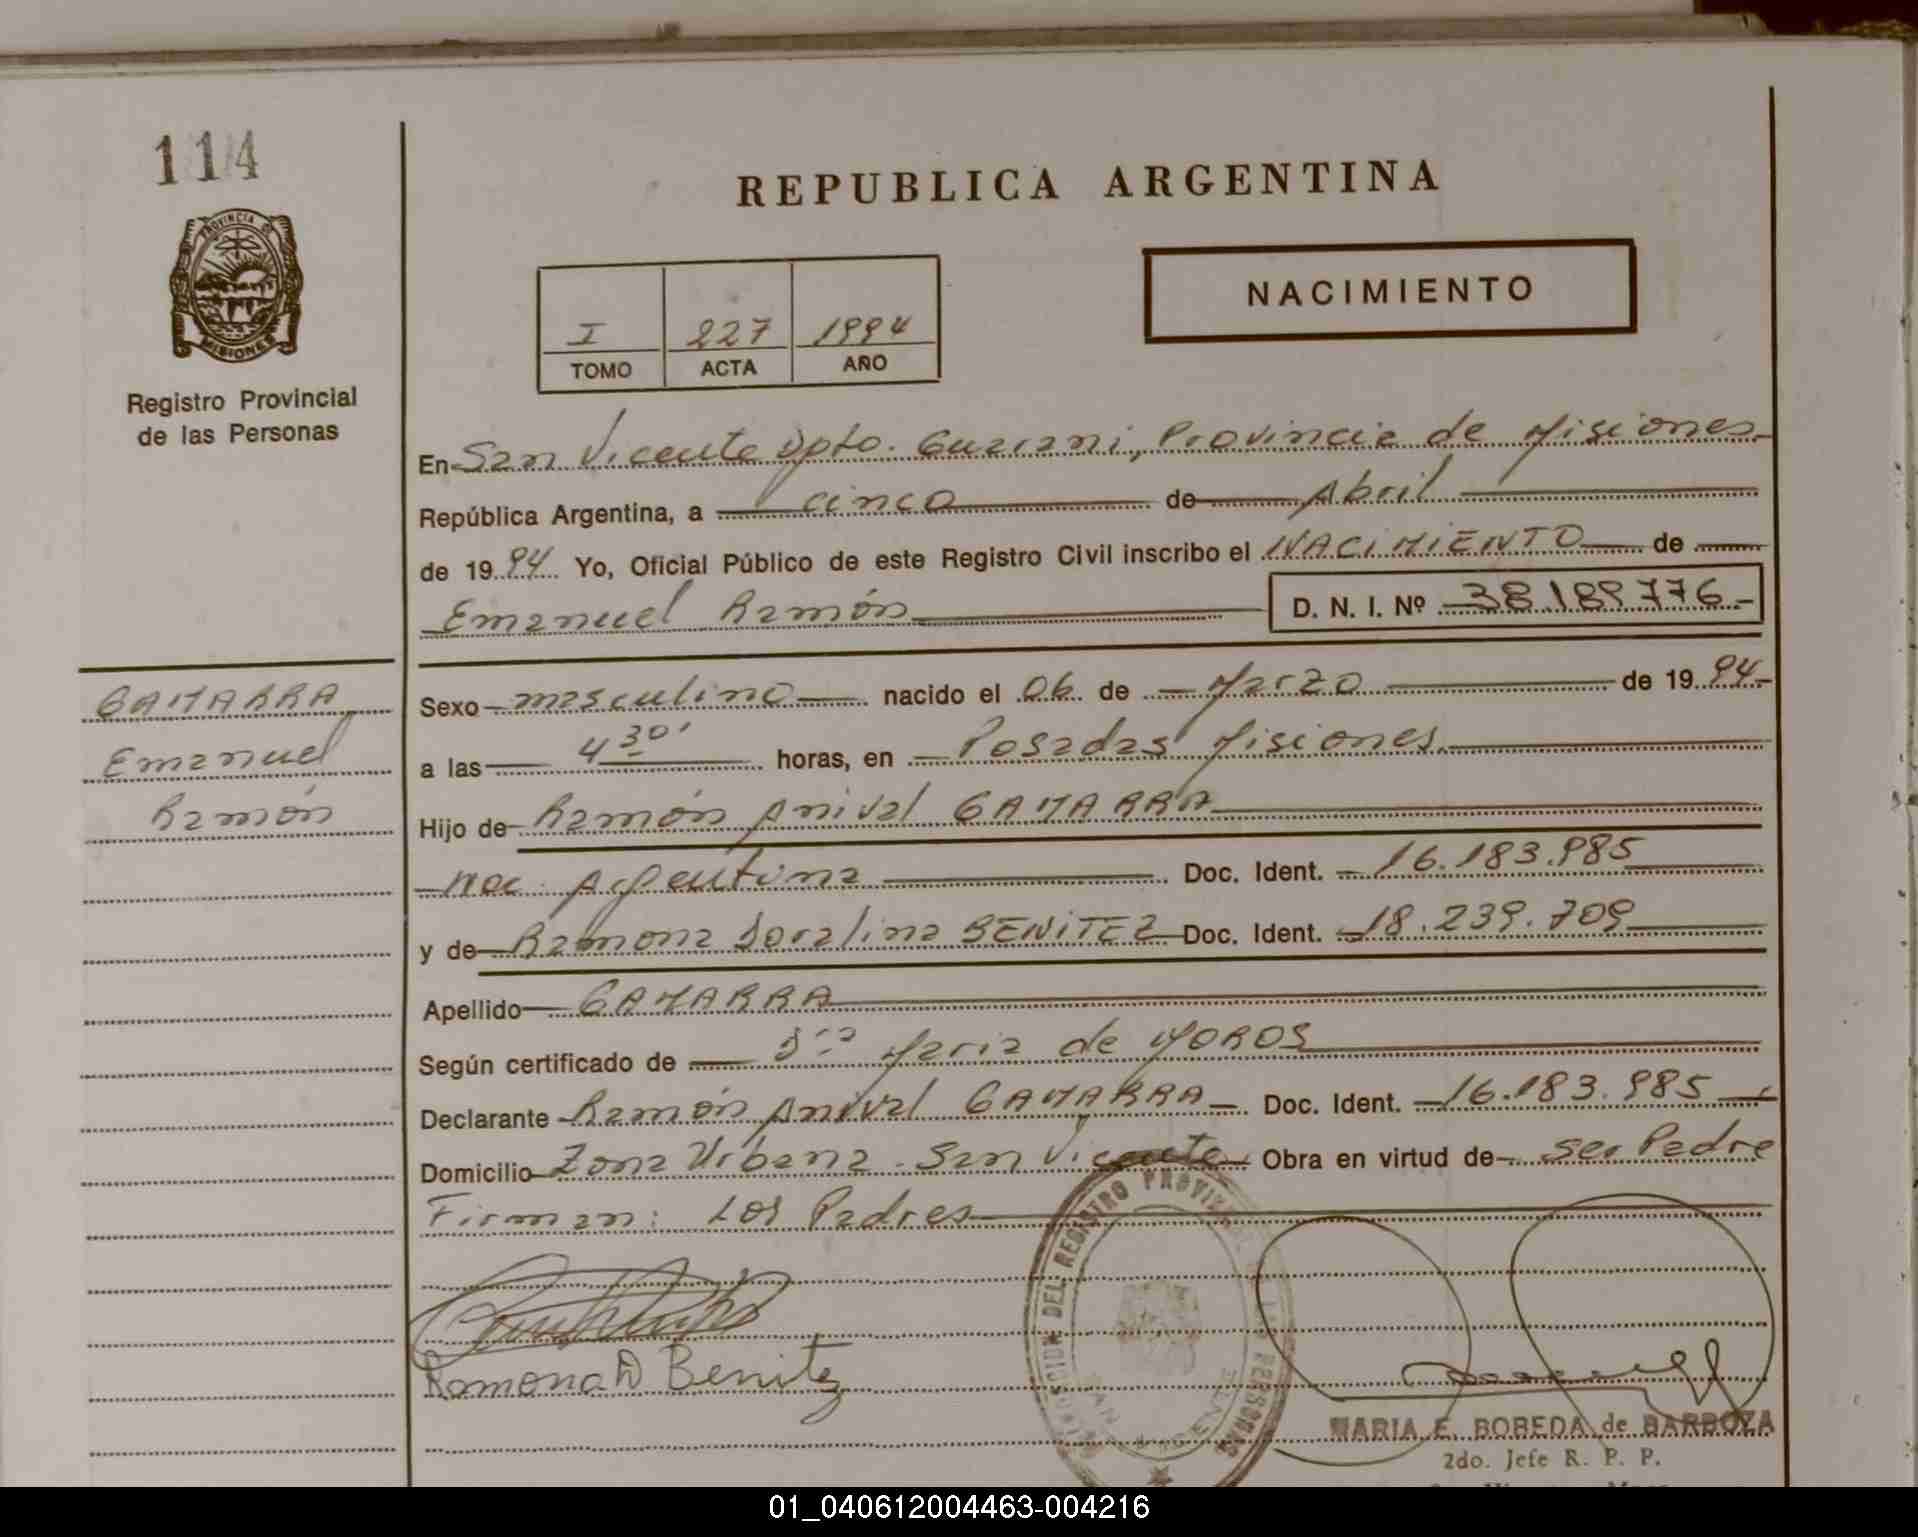 114
PROVINCIA DE
MISIONES
Registro Provincial
de las Personas
REPUBLICA ARGENTINA
NACIMIENTO
I 227 1994
TOMO ACTA AÑO
En San Vicente Dpto. Guarani, Provincia de Misiones
República Argentina, a cinco de Abril
de 1994 Yo, Oficial Público de este Registro Civil inscribo el NACIMIENTO de
Emanuel Ramón D. N. I. Nº 38.189.776.-
GAMARRA
Emanuel
Ramón
Sexo masculino nacido el 06 de Marzo de 1994
a las 4 30' horas, en Posadas Misiones
Hijo de Ramón Anival GAMARRA
Nac. Argentina Doc. Ident. 16.183.985
y de Ramona Doralina BENITEZ Doc. Ident. 18.239.709
Apellido GAMARRA
Según certificado de Dra Maria de MOROS
Declarante Ramón Anival GAMARRA Doc. Ident. 16.183.985
Domicilio Zona Urbana. San Vicente Obra en virtud de ser Padre
Firman: Los Padres
Ramona D Benitez
DEL REGISTRO PROVINCIAL DE LAS PERSONAS
SAN VICENTE
MARIA E. BOBEDA de BARBOZA
2do. Jefe R. P. P.
01_040612004463-004216